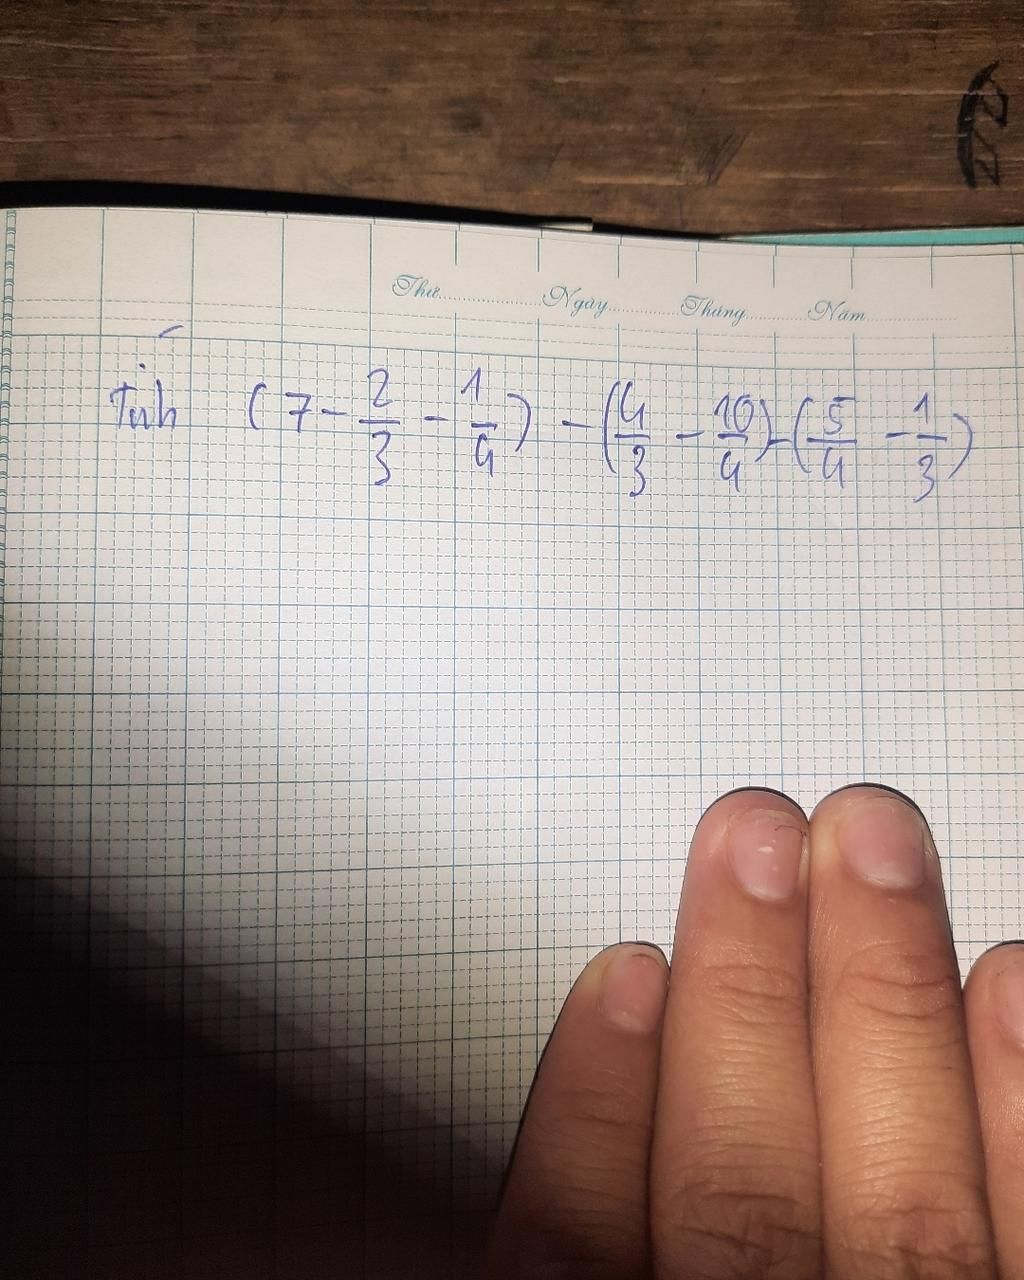 Thứ......Ngày......Tháng......Năm......
Tính (7 - 2/3 - 1/4) - (4/3 - 10/4) - (5/4 - 1/3)